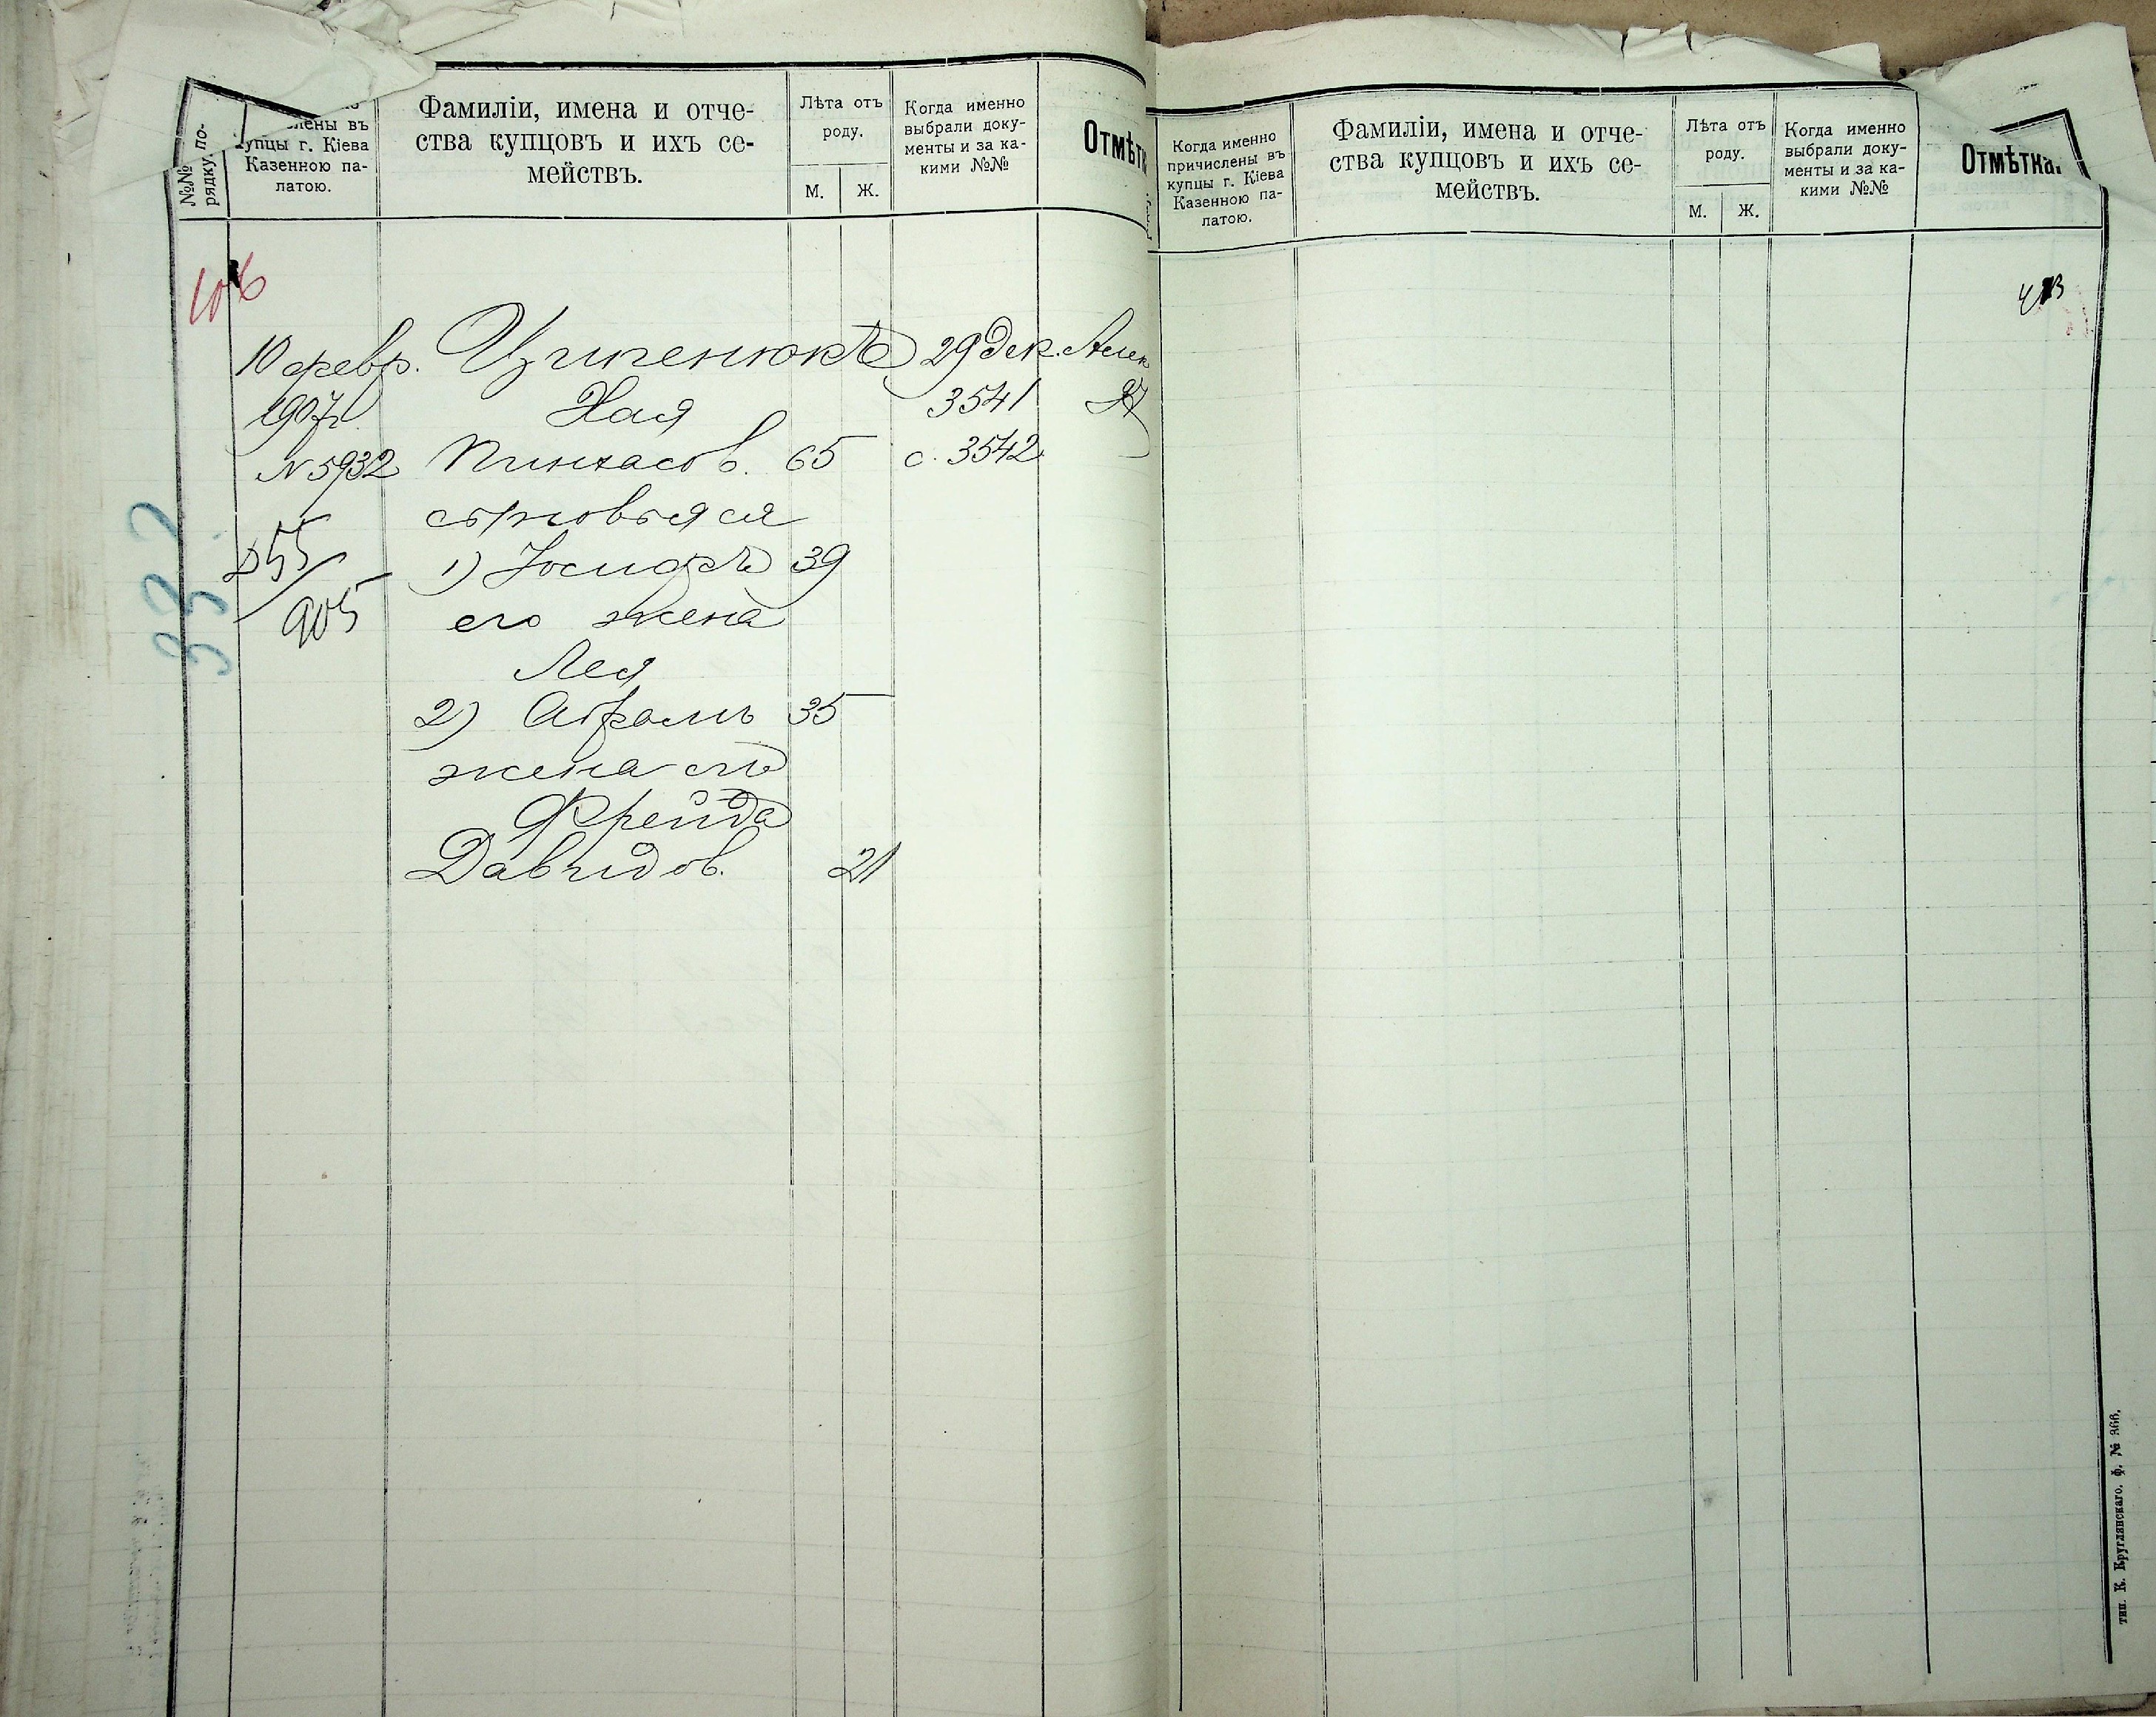 №№ по-
рядку.
лены въ
купцы г. Кіева
Казенною па-
латою.
Фамиліи, имена и отче-
ства купцовъ и ихъ се-
мействъ.
Лѣта отъ
роду.
М. Ж.
Когда именно
выбрали доку-
менты и за ка-
кими №№
Отмѣтк
106
10 февр. Цыпенюкъ 29 Дек.
1907 Хая 3541
N 5932 Пинхасов. 65 с. 3542
сыновья ея
255/905
1) Іосифъ 39
его жена
Лея
2) Абрамъ 35
жена его
Фрейда
Давидов. 21
33
Когда именно
причислены въ
купцы г. Кіева
Казенною па-
латою.
Фамиліи, имена и отче-
ства купцовъ и ихъ се-
мействъ.
Лѣта отъ
роду.
М. Ж.
Когда именно
выбрали доку-
менты и за ка-
кими №№
Отмѣтка.
тип. К. Круглянскаго. ф. № 366.